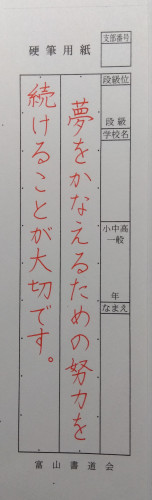 硬筆用紙
支部番号
段級位
段級
学校名
小中高
一般
年
なまえ
夢をかなえるための努力を
続けることが大切です。
富山書道会